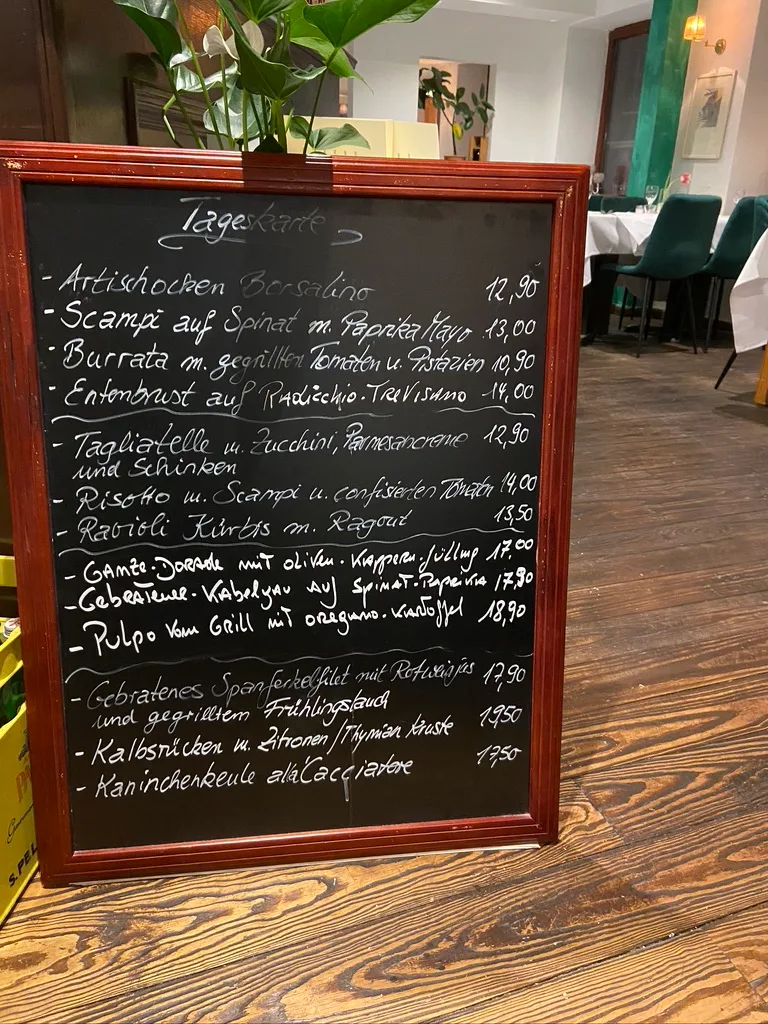 Tageskarte
- Artischocken Borsalino 12,90
- Scampi auf Spinat m. Paprika Mayo 13,00
- Burrata m. gegrillten Tomaten u. Pistazien 10,90
- Entenbrust auf Radicchio-Trevisano 14,00
- Tagliatelle m. Zucchini, Parmesancreme 12,90
und Schinken
- Risotto m. Scampi u. confisierten Tomaten 14,00
- Ravioli Kürbis m. Ragout 13,50
- Ganze-Dorade mit oliven-Kappern-füllung 17,00
- Gebratener-Kabeljau auf Spinat-Paprika 17,90
- Pulpo vom Grill mit oregano-Kartoffel 18,90
- Gebratenes Spanferkelfilet mit Rotweinjus 17,90
und gegrilltem Frühlingslauch
- Kalbsrücken m. Zitronen/Thymian Kruste 19,50
- Kaninchenkeule alla Cacciatore 17,50
S.PEL